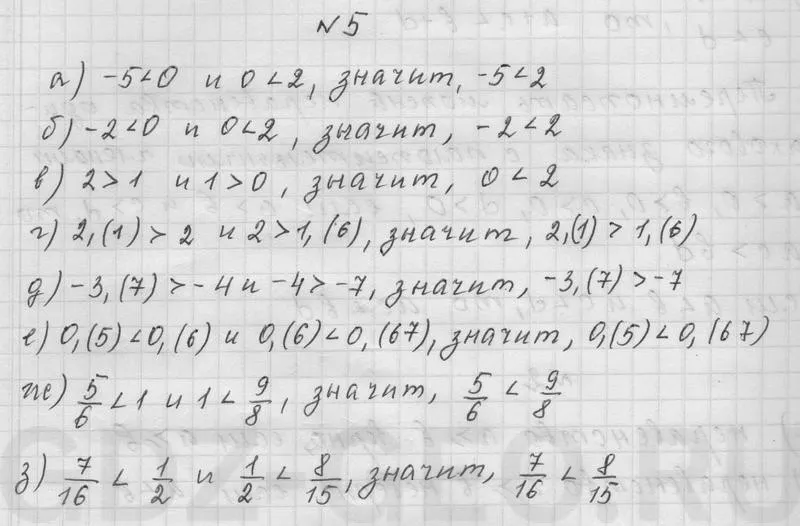 №5
а) -5<0 и 0<2, значит, -5<2
б) -2<0 и 0<2, значит, -2<2
в) 2>1 и 1>0, значит, 0<2
г) 2,(1)>2 и 2>1,(6), значит, 2,(1)>1,(6)
д) -3,(7)>-4 и -4>-7, значит, -3,(7)>-7
е) 0,(5)<0,(6) и 0,(6)<0,(67), значит, 0,(5)<0,(67)
ж) 5/6<1 и 1<9/8, значит, 5/6<9/8
з) 7/16<1/2 и 1/2<8/15, значит, 7/16<8/15